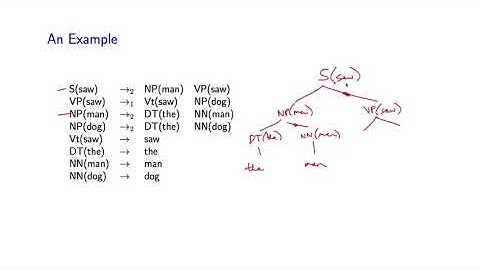 An Example
S(saw) →₂ NP(man) VP(saw)
VP(saw) →₁ Vt(saw) NP(dog)
NP(man) →₂ DT(the) NN(man)
NP(dog) →₂ DT(the) NN(dog)
Vt(saw) → saw
DT(the) → the
NN(man) → man
NN(dog) → dog
S(saw)
NP(man) VP(saw)
DT(the) NN(man)
the man